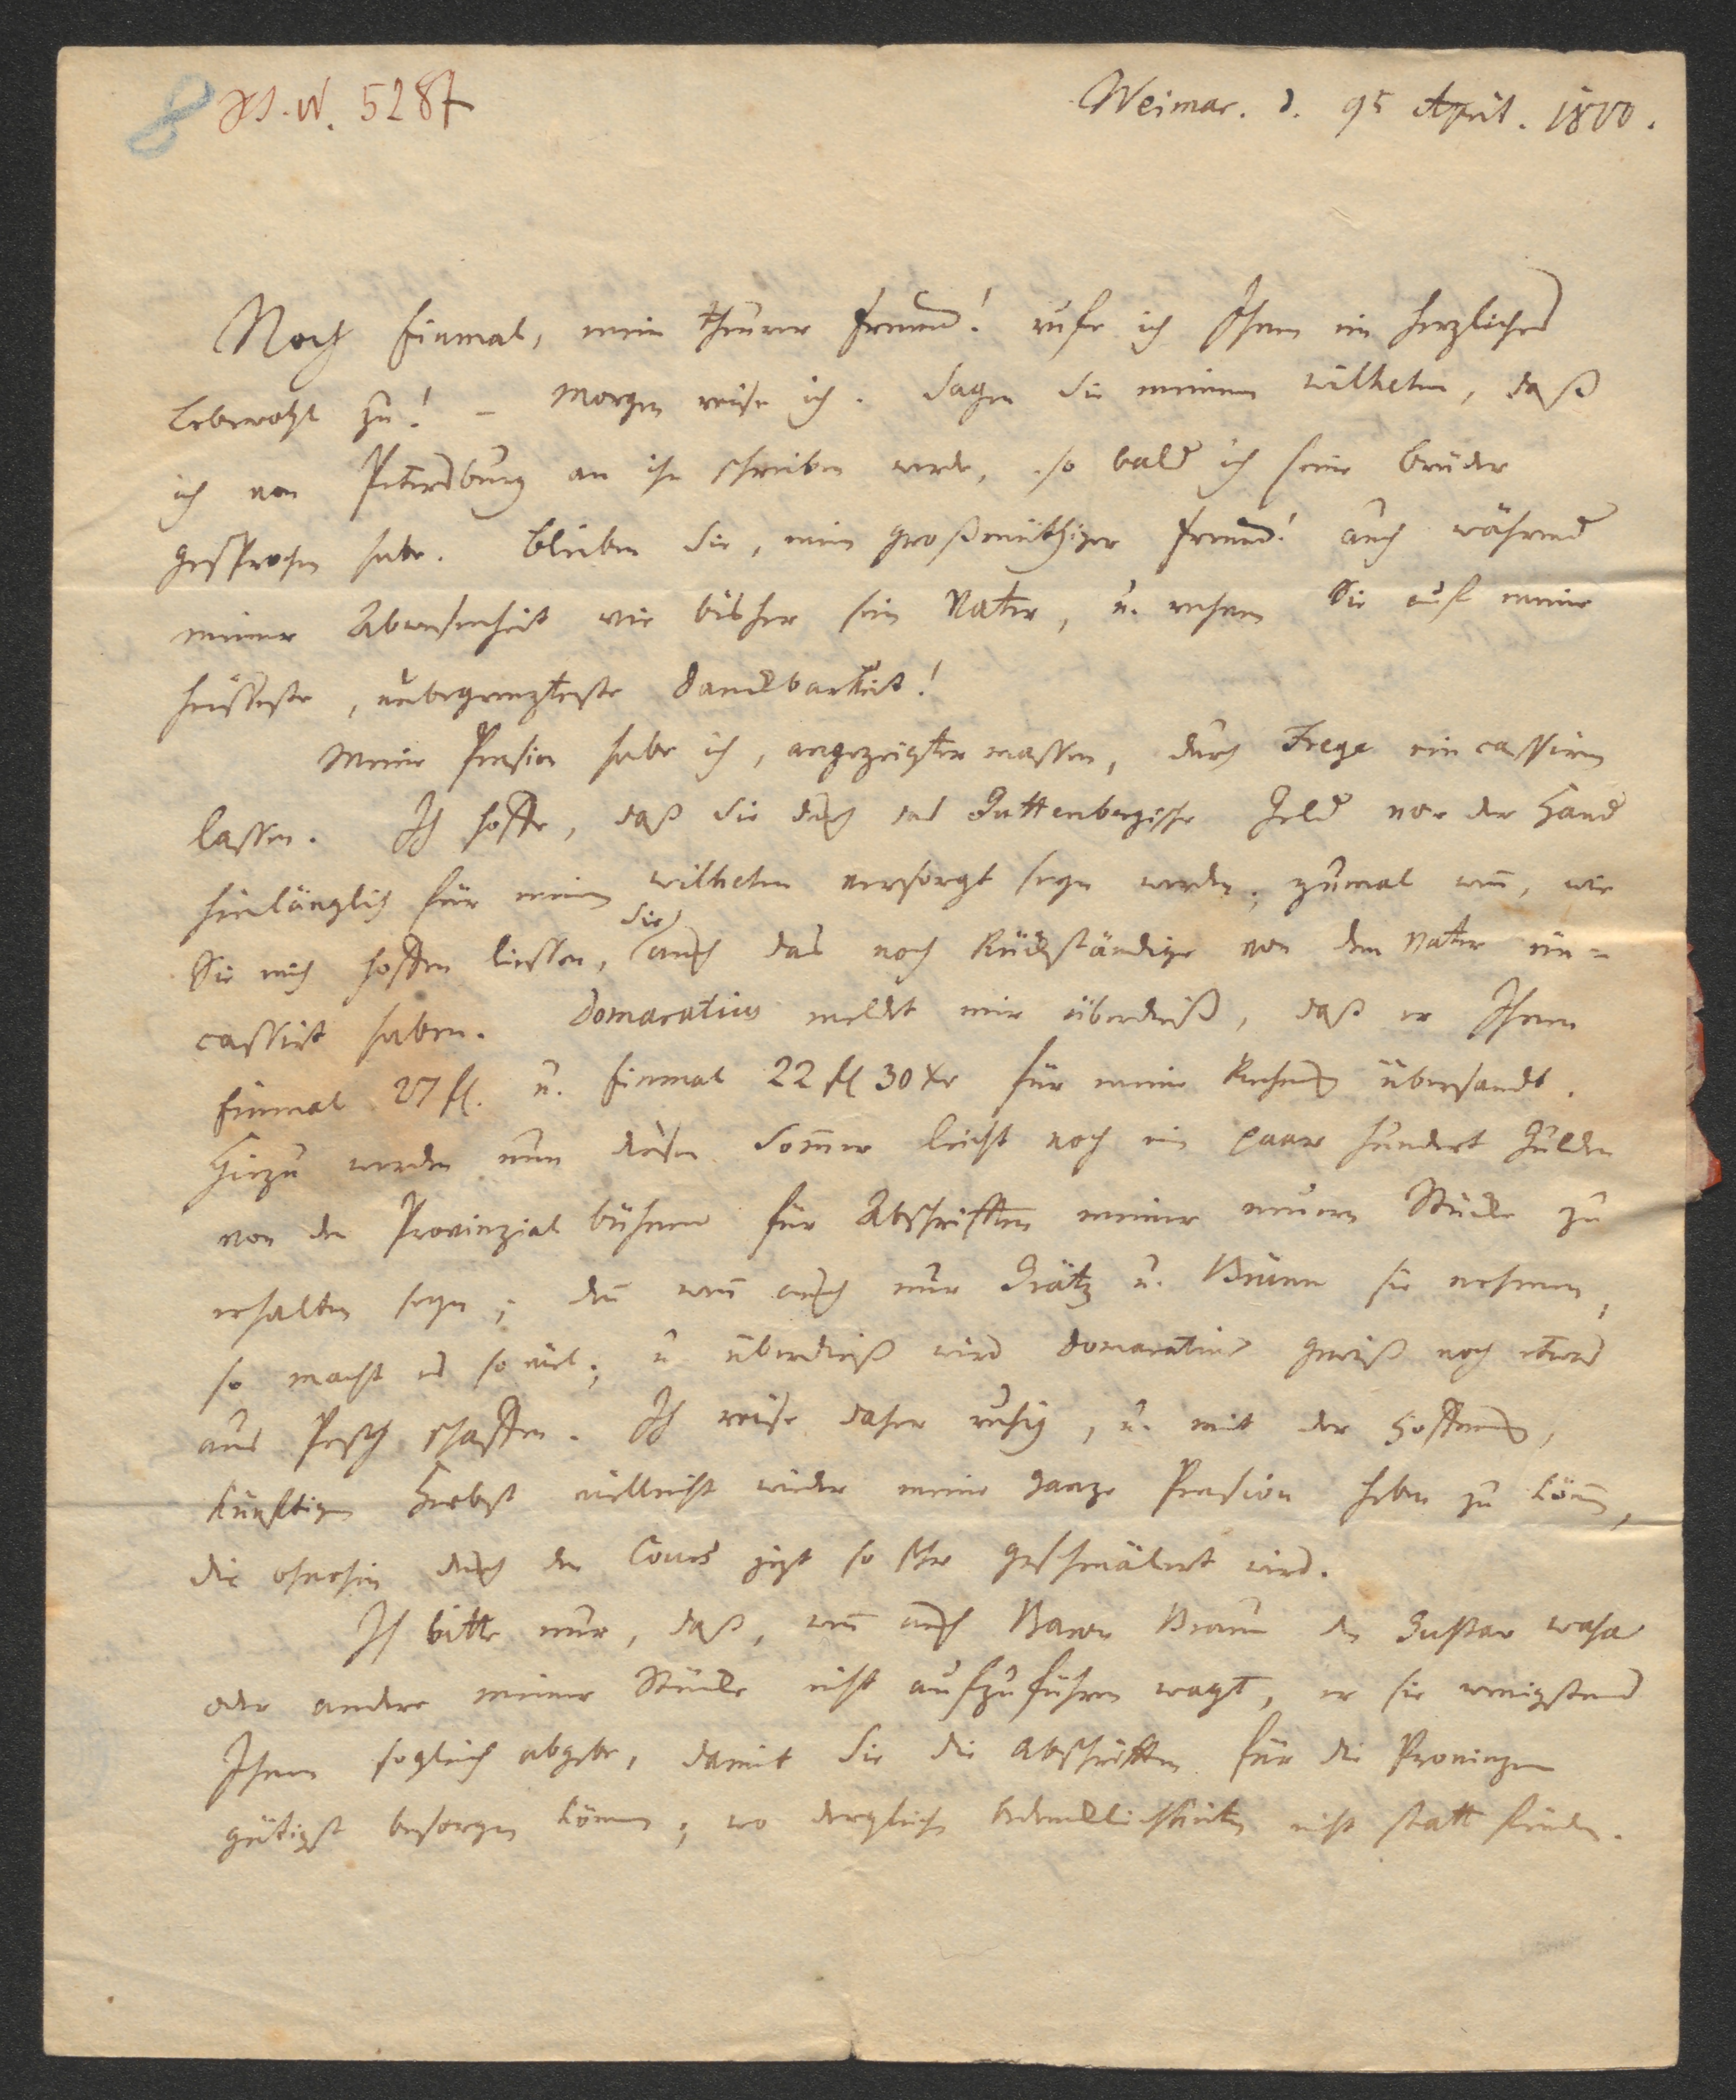 8 H. W. 5287
Weimar. d. 9t April. 1800.
Noch Einmal, mein theurer Freund! rufe ich Ihnen ein herzliches
Lebewohl zu! – Morgen reise ich. Sagen Sie meinem Wilhelm, daß
ich von Petersburg an ihn schreiben werde, so bald ich seine Brüder
gesprochen habe. Bleiben Sie, mein großmüthiger Freund! auch während
meiner Abwesenheit wie bisher sein Vater, u. rechnen Sie auf meine
heisseste, unbegrenzteste Dankbarkeit!
Meine Pension habe ich, angezeigter massen, durch Frege ein cassiren
lassen. Ich hoffe, daß Sie durch das Guttenbergische Geld vor der Hand
hinlänglich für meinen Wilhelm versorgt seyn werden; zumal weñ, wie
Sie mich hoffen liessen, Sie auch das noch Rückständige von dem Vater ein=
cassirt haben. Domaratius meldet mir überdieß, daß er Ihnen
Einmal 27 fl. u. Einmal 22 fl 30 Xr für meine Rechnung übersandt.
Hiezu werden nun diesen Som̃er leicht noch ein paar hundert Gulden
von den Provinzial bühnen für Abschriften meiner neuern Stücke zu
erhalten seyn; deñ weñ auch nur Grätz u. Brünn sie nehmen,
so macht es so viel; u überdieß wird Domaratius gewiß noch etwas
aus Pesth schaffen. Ich reise daher ruhig, u. mit der Hoffnung,
künftigen Herbst vielleicht wieder meine ganze Pension heben zu köñen,
die ohnehin durch den Cours jezt so sehr geschmälert wird.
Ich bitte nur, daß, weñ auch Baron Braun den Gustav Wasa
oder andre meiner Stücke nicht aufzuführen wagt, er sie wenigstens
Ihnen sogleich abgebe, damit Sie die Abschriften für die Provinzen
gütigst besorgen können; wo dergleichen Bedencklichkeiten nicht statt finden.